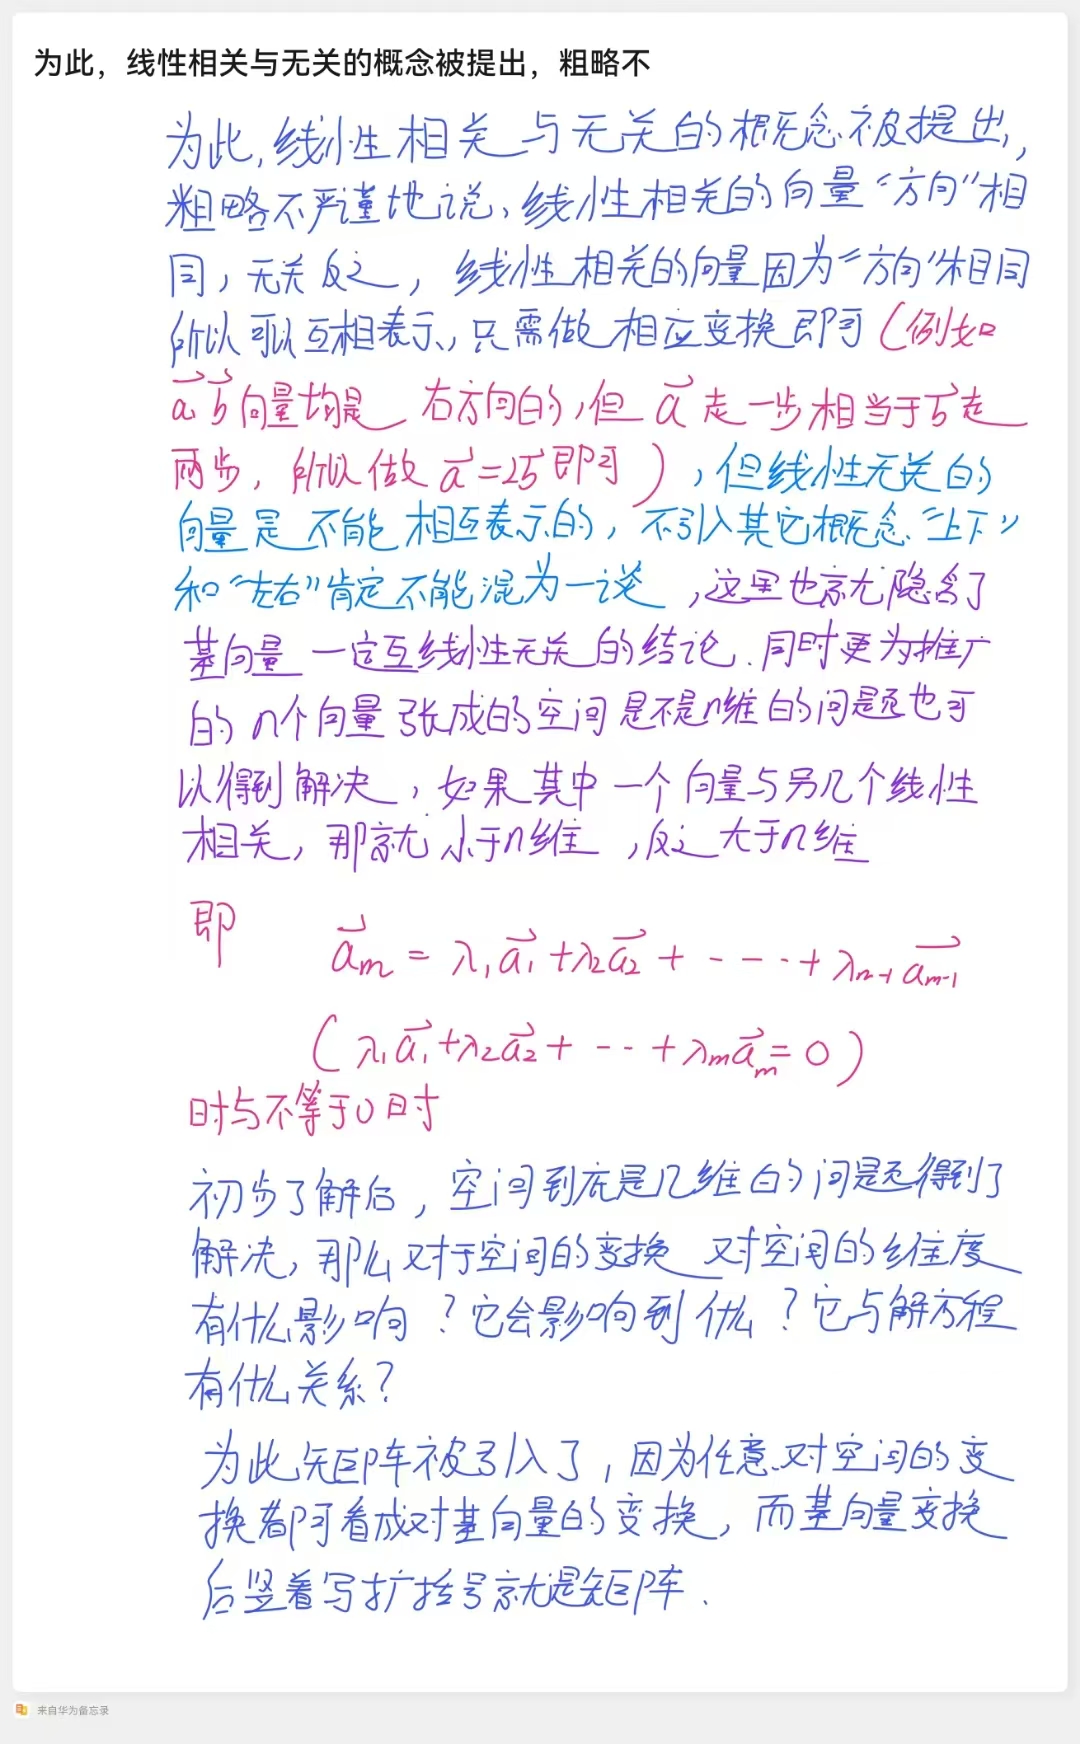 为此，线性相关与无关的概念被提出，粗略不
为此，线性相关与无关的概念被提出，
粗略不严谨地说，线性相关的向量“方向”相
同，无关反之，线性相关的向量因为“方向”相同
所以可以互相表示，只需做相应变换即可（例如
a⃗ b⃗向量均是右方向的，但a⃗走一步相当于b⃗走
两步，所以做a⃗=2b⃗即可），但线性无关的
向量是不能相互表示的，不引入其它概念“上下”
和“左右”肯定不能混为一谈，这里也就隐含了
基向量一定互线性无关的结论．同时更为推广
的n个向量张成的空间是不是n维的问题也可
以得到解决，如果其中一个向量与另几个线性
相关，那就小于n维，反之大于n维
即 a⃗m = λ₁a⃗₁+λ₂a⃗₂+----+λm-1a⃗m-1
（λ₁a⃗₁+λ₂a⃗₂+--+λma⃗m=0）
时与不等于0时
初步了解后，空间到底是几维的问题得到了
解决，那么对于空间的变换对空间的维度
有什么影响？它会影响到什么？它与解方程
有什么关系？
为此矩阵被引入了，因为任意对空间的变
换都可看成对基向量的变换，而基向量变换
后竖着写扩括号就是矩阵．
来自华为备忘录